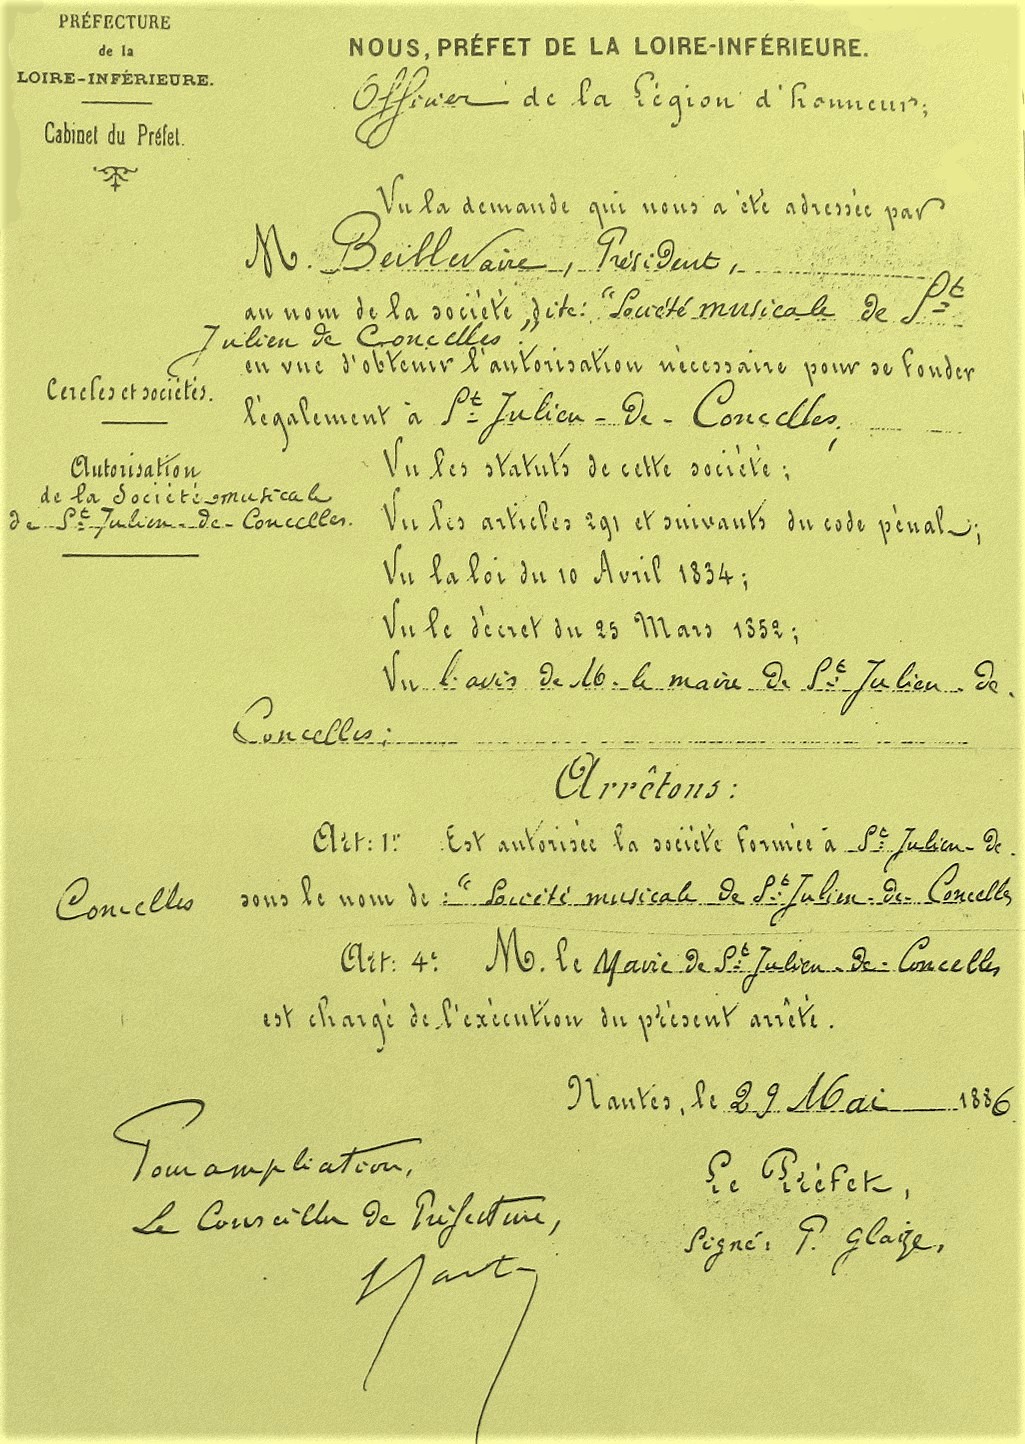 PRÉFECTURE
de la
LOIRE-INFÉRIEURE.
Cabinet du Préfet.
NOUS, PRÉFET DE LA LOIRE-INFÉRIEURE.
Officier de la Légion d'honneur;
Vu la demande qui nous a été adressée par
M. Beillevaire, Président,
au nom de la société dite: "Société musicale de St
Julien de Concelles."
en vue d'obtenir l'autorisation nécessaire pour se fonder
légalement à St Julien-de-Concelles,
Cercles et sociétés.
Autorisation
de la Société musicale
de St Julien-de-Concelles.
Vu les statuts de cette société;
Vu les articles 291 et suivants du code pénal;
Vu la loi du 10 Avril 1834;
Vu le décret du 25 Mars 1852;
Vu l'avis de M. le maire de St Julien-de-
Concelles;
Arrêtons:
Art: 1er Est autorisée la société formée à St Julien-de-
Concelles sous le nom de: "Société musicale de St Julien-de-Concelles
Art: 4e. M. le Maire de St Julien-de-Concelles
est chargé de l'exécution du présent arrêté.
Nantes, le 29 Mai 1886
Pour ampliation,
Le Conseiller de Préfecture,
Le Préfet,
Signé: P. Glaize,